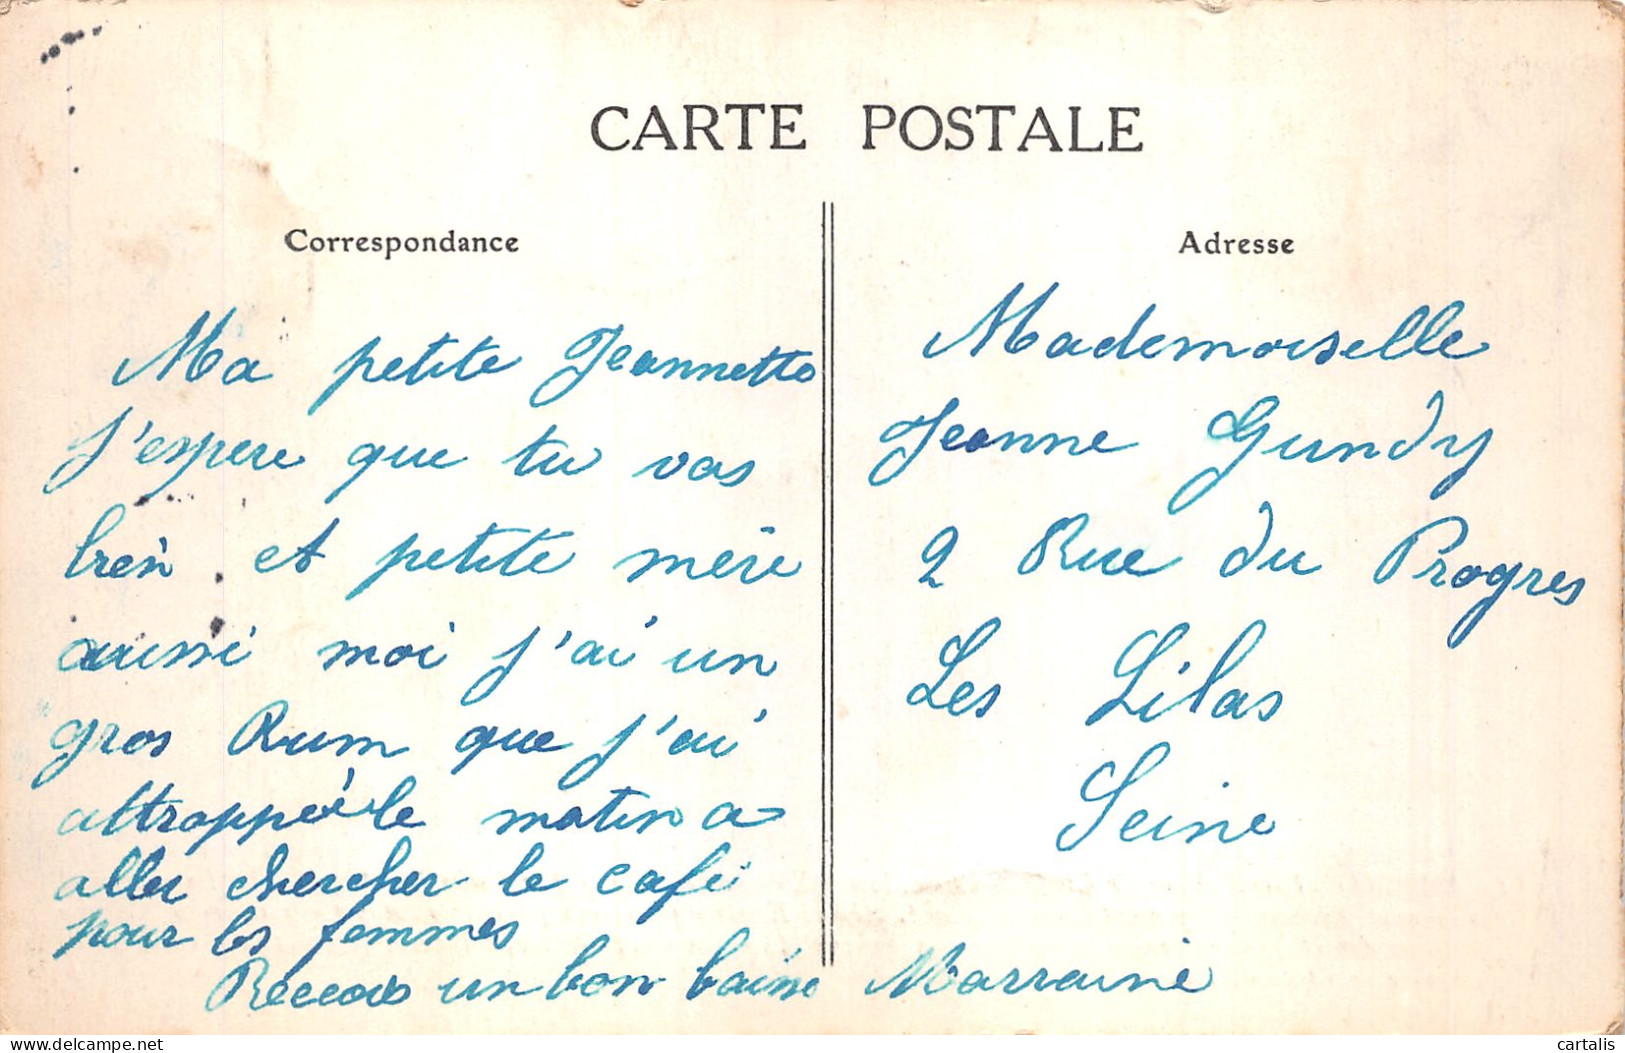 CARTE POSTALE
Correspondance
Ma petite Jeannette
j'espere que tu vas
bien et petite mère
aussi moi j'ai un
gros Rum que j'ai
attroppée le matin a
aller chercher le café
pour les femmes
Reccois un bon Marraine
Adresse
Mademoiselle
Jeanne Gundy
2 Rue du Progres
Les Lilas
Seine
delcampe.net
cartalis